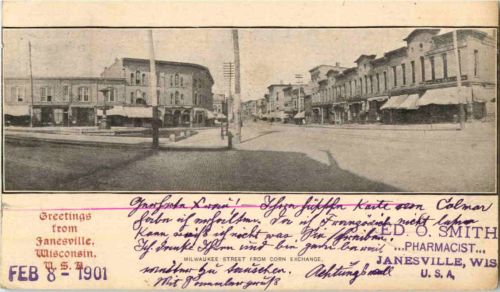 Geehrter Herr! Ihre hübsche Karte von Colmar
habe ich erhalten. Da ich Französisch nicht lesen
kann weiß ich nicht was Sie schreiben.
Ich danke Ihnen und bin gerne bereit
weiter zu tauschen. Achtungsvoll
Mit
Greetings
from
Janesville,
Wisconsin.
U.S.A.
FEB 8 - 1901
MILWAUKEE STREET FROM CORN EXCHANGE.
ED. O. SMITH
...PHARMACIST...
JANESVILLE, WIS
U.S.A.